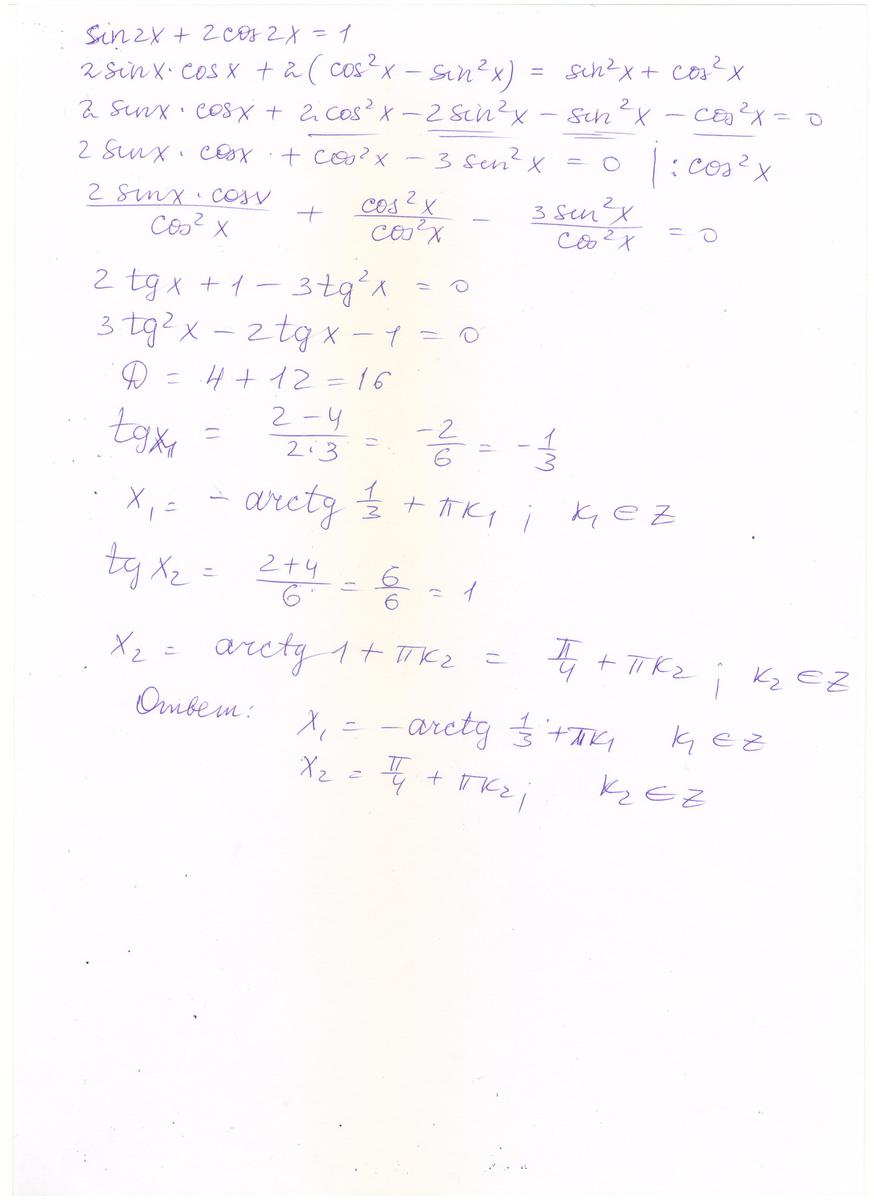 sin2x + 2cos2x = 1
2sinx·cosx + 2(cos²x − sin²x) = sin²x + cos²x
2 sinx·cosx + 2cos²x − 2sin²x − sin²x − cos²x = 0
2 sinx · cosx + cos²x − 3 sin²x = 0 | : cos²x
2 sinx · cosx / cos²x + cos²x / cos²x − 3 sin²x / cos²x = 0
2 tgx + 1 − 3tg²x = 0
3tg²x − 2tgx − 1 = 0
D = 4 + 12 = 16
tgx₁ = (2 − 4) / (2·3) = −2/6 = −1/3
x₁ = − arctg 1/3 + πk₁ ; k₁ ∈ Z
tgx₂ = (2+4)/6 = 6/6 = 1
x₂ = arctg 1 + πk₂ = π/4 + πk₂ ; k₂ ∈ Z
Ответ: x₁ = − arctg 1/3 + πk₁ k₁ ∈ Z
x₂ = π/4 + πk₂ ; k₂ ∈ Z